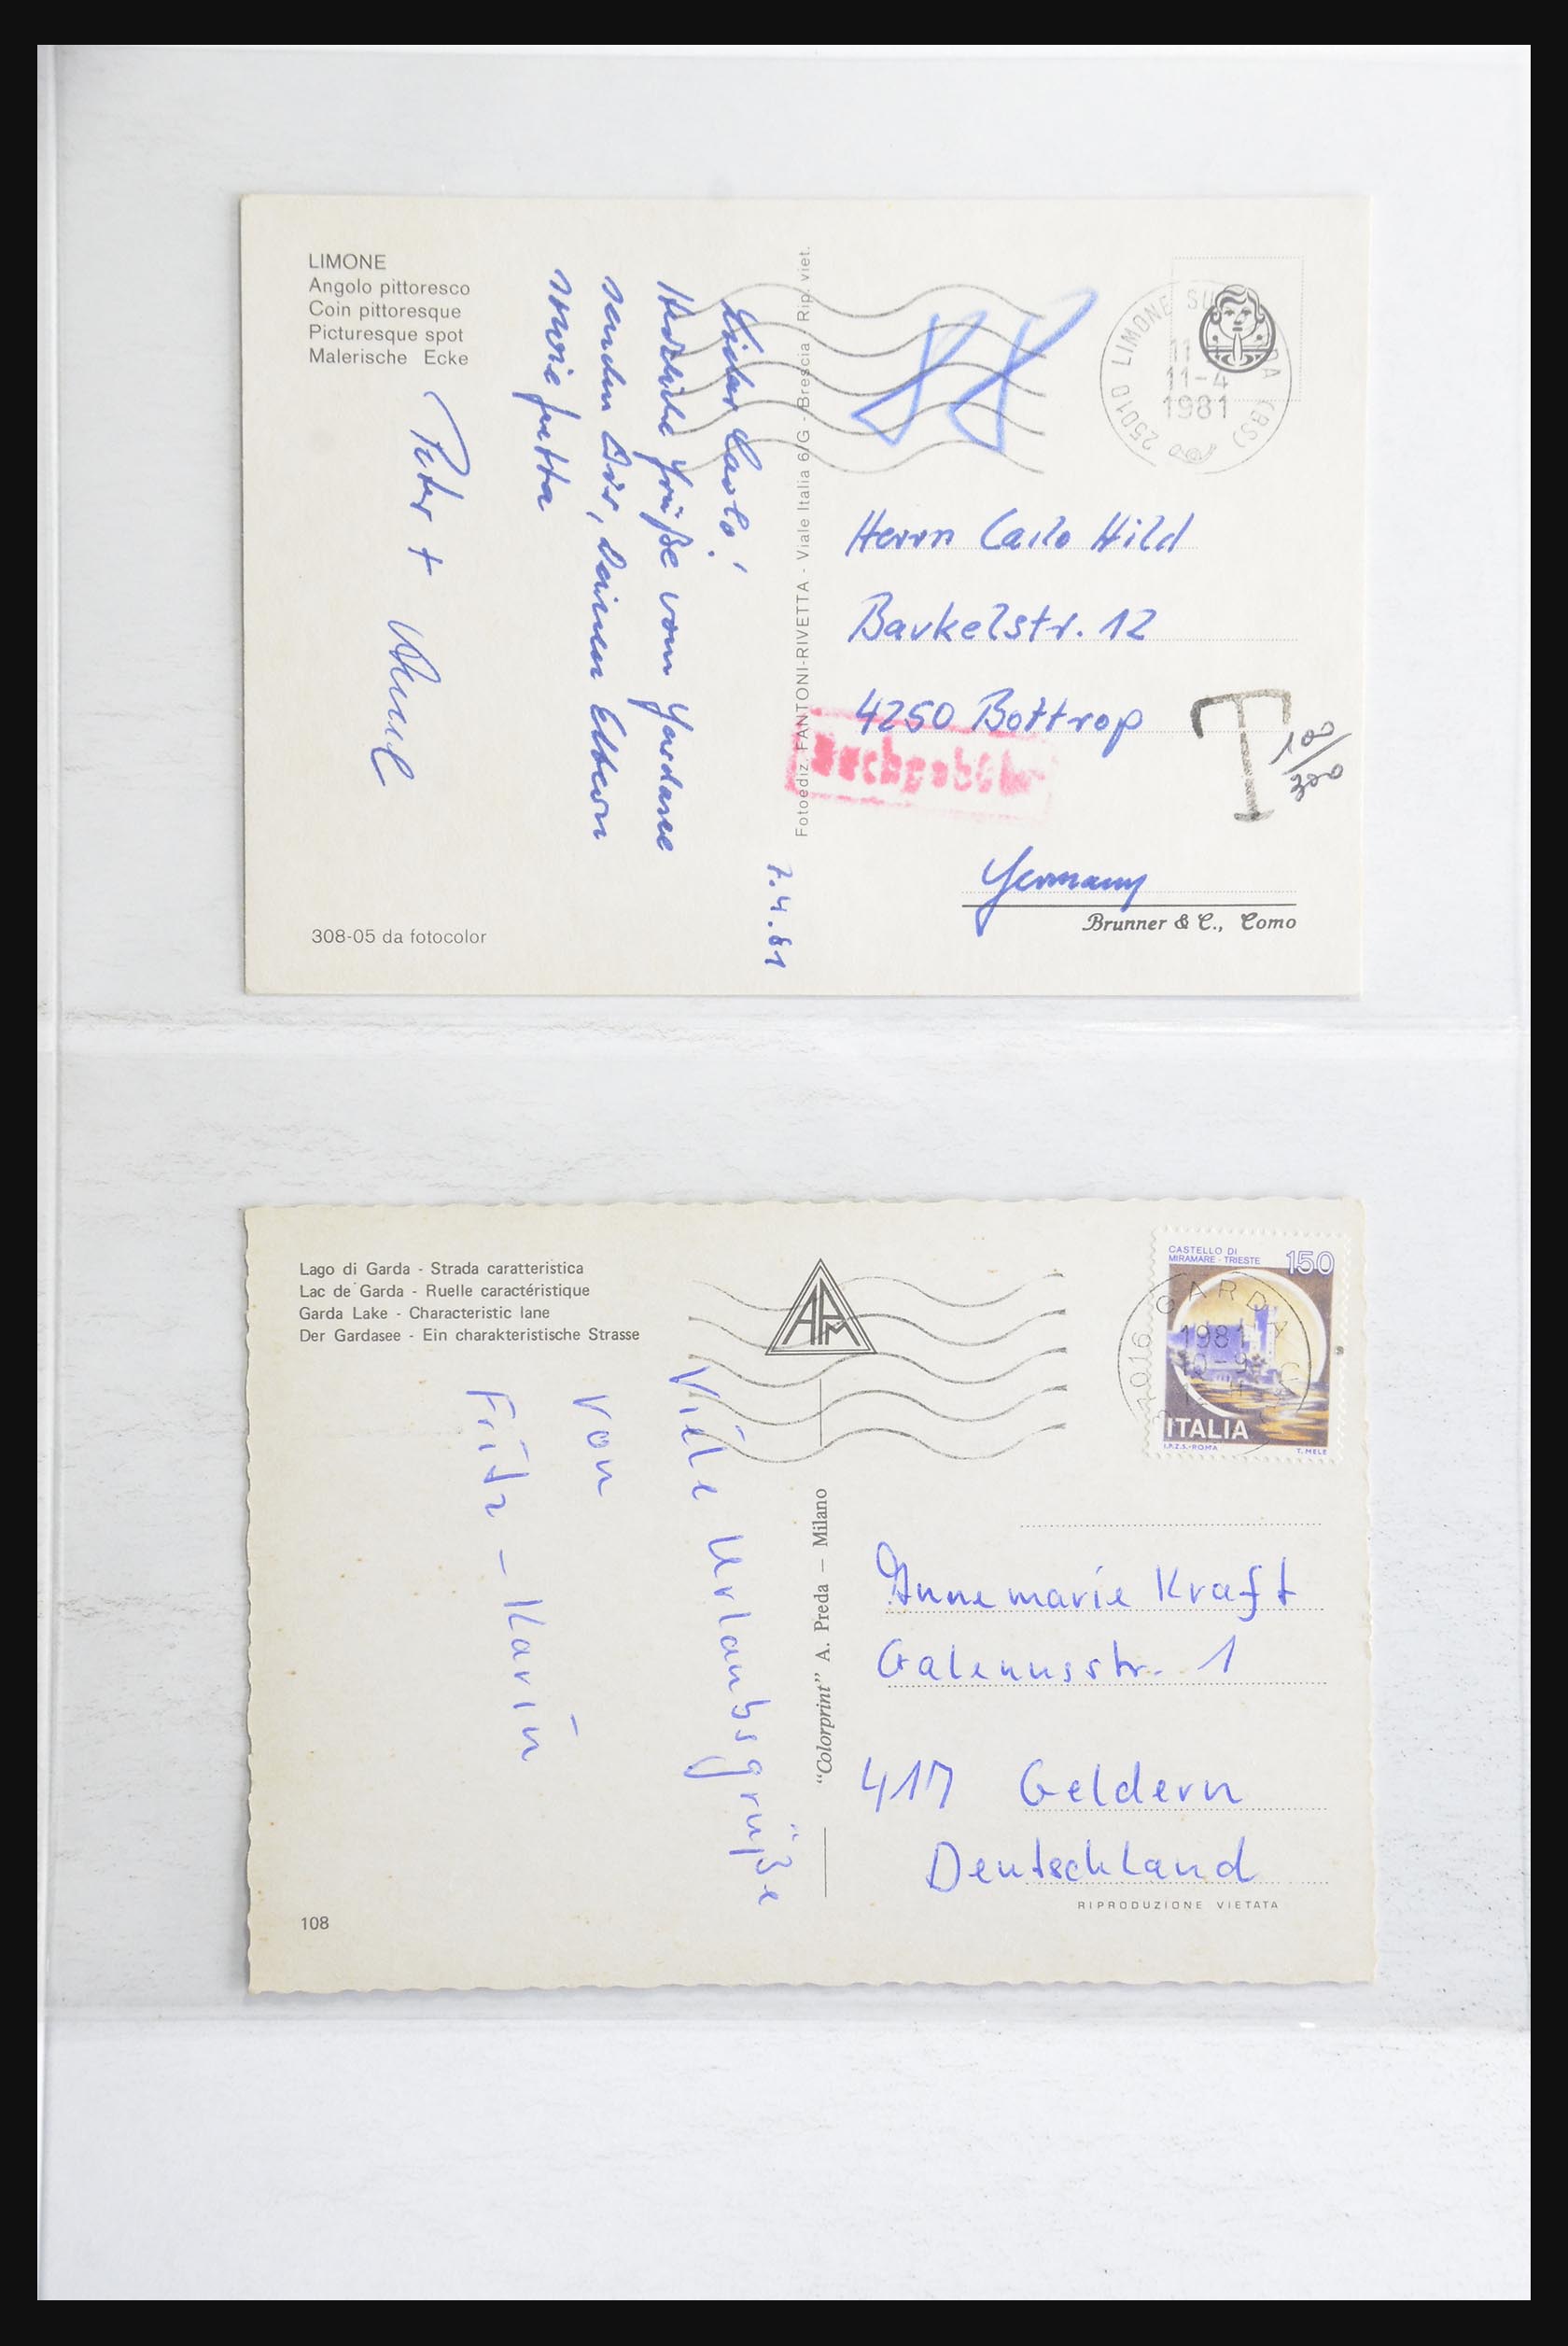 LIMONE
Angolo pittoresco
Coin pittoresque
Picturesque spot
Malerische Ecke
Lieber Carlo!
Herzliche Grüße vom Gardasee
senden Dir, Deinen Eltern
sowie Jutta
Peter +
7.4.81
308-05 da fotocolor
Fotoediz. FANTONI-RIVETTA - Viale Italia 6/G - Brescia - Rip. viet.
25010 LIMONE SU DA (BS)
11-4
1981
Herrn Carlo Hild
4250 Bottrop
Nachgebühr
T
100/300
Germany
Brunner & C., Como
Lago di Garda - Strada caratteristica
Lac de Garda - Ruelle caractéristique
Garda Lake - Characteristic lane
Der Gardasee - Ein charakteristische Strasse
Viele Urlaubsgrüße
von
Fritz - Karin
108
"Colorprint" A. Preda — Milano
CASTELLO DI
MIRAMARE - TRIESTE
150
GARDA
1981
ITALIA
I.P.Z.S.-ROMA
T. MELE
Annemarie Kraft
Galenusstr. 1
417 Geldern
Deutschland
RIPRODUZIONE VIETATA